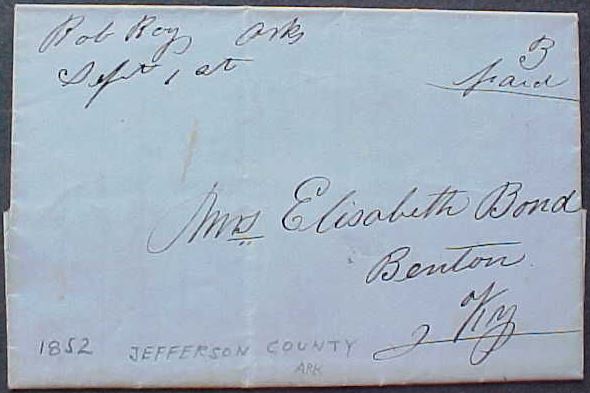 Rob Roy Arks
Sept 1st
3
Paid
Mrs Elisabeth Bond
Benton
Ky
1852 JEFFERSON COUNTY
ARK